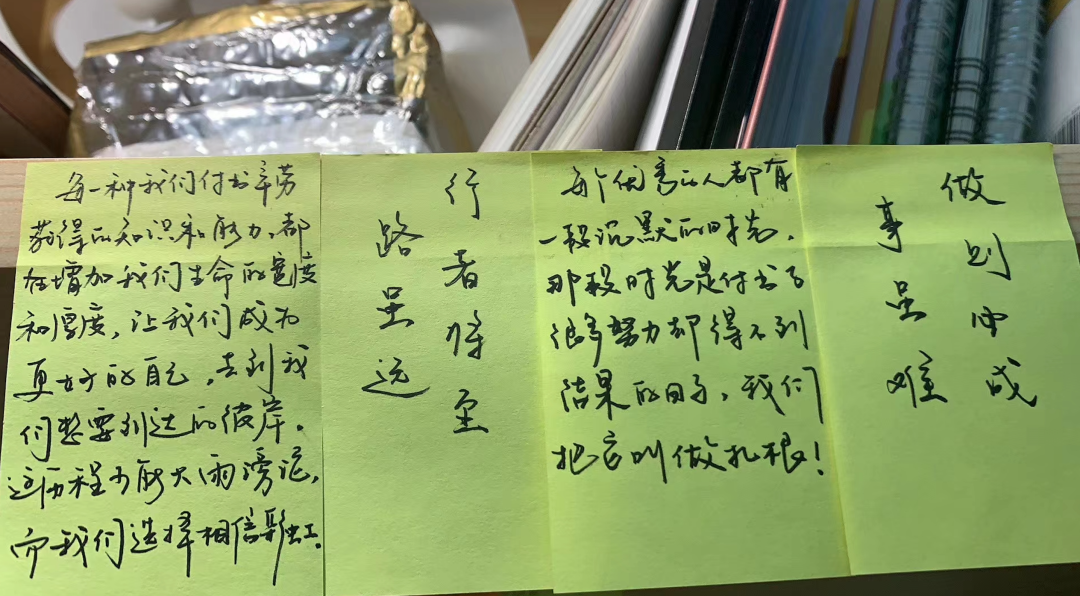 每一种我们付出辛劳
获得的知识和能力，都
在增加我们生命的宽度
和厚度，让我们成为
更好的自己，去到我
们想要到达的彼岸。
这历程可能大雨滂沱，
而我们选择相信彩虹。
路虽远
行者将至
每个优秀的人都有
一段沉默的时光，
那段时光是付出了
很多努力却得不到
结果的日子，我们
把它叫做扎根！
事虽难
做则必成